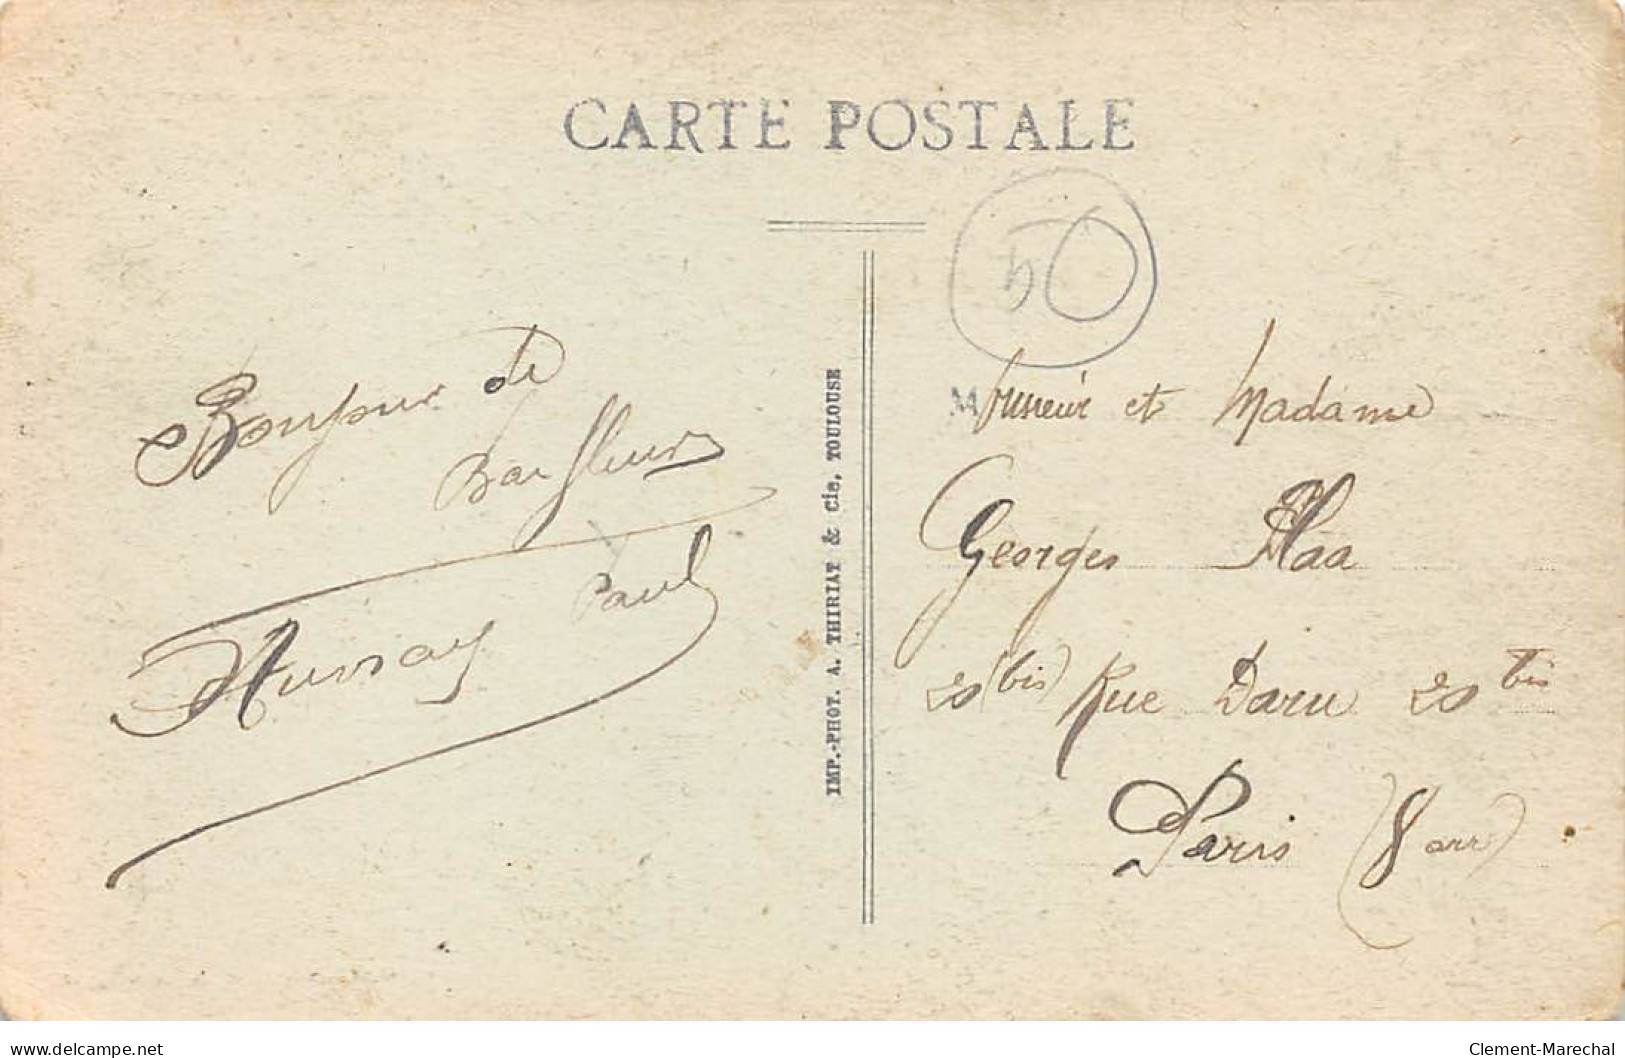 CARTE POSTALE
50
Bonjour de
Barfleur
Paul
Auvray
IMP.-PHOT. A. THIRIAT & Cie, TOULOUSE
Monsieur et Madame
Georges Haa
20 (bis) Rue Daru 20 bis
Paris (8 arr)
delcampe.net
Clement-Marechal